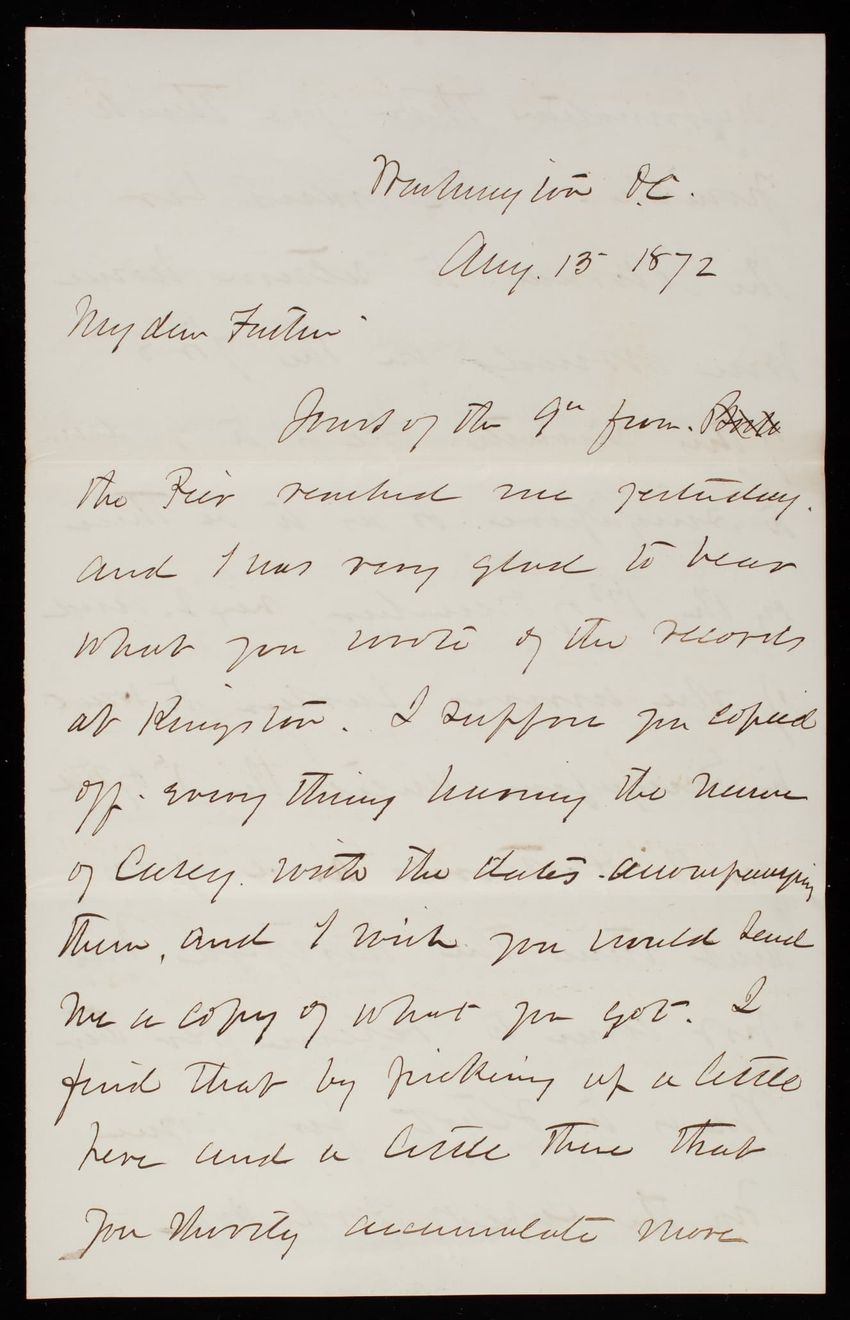 Washington D.C.
Aug. 13 1872
My dear Father
Yours of the 9th from
the Pier reached me yesterday.
and I was very glad to hear
what you wrote of the records
at Kingston. I suppose you copied
off. every thing having the name
of Casey. with the dates accompanying
them, and I wish you would send
me a copy of what you got. I
find that by picking up a little
here and a little there that
you shortly accumulate more